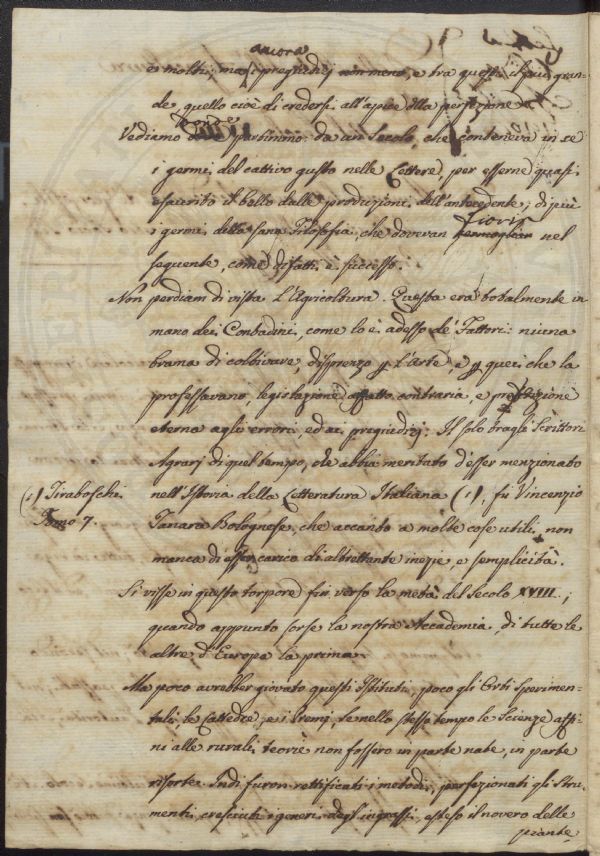 ancora
e molti, ma i pregiudizj non meno, e tra questi il più gran-
de, quello cioè di credersi all'apice della perfezione.
Vediamo donde partimmo: da un Secolo, che conteneva in se
i germi del cattivo gusto nelle Lettere, per esserne quasi
esaurito il bello dalle produzioni dell'antecedente; di più
fiorir
i germi della sana Filosofia, che doveran germogliar nel
seguente, come difatti è successo.
Non perdiam di vista l'Agricoltura. Questa era totalmente in
mano dei Contadini, come lo è adesso de' Fattori: niuna
brama di coltivare, disprezzo p l'Arte, e p quei che la
professavano, legislazione affatto contraria, e protezione
eterna agli errori, ed ai pregiudizj. Il solo tragli Scrittori
Agrarj di quel tempo, che abbia meritato d'esser menzionato
nell'Istoria della Letteratura Italiana (1), fù Vincenzio
(1) Tiraboschi
Tomo 7.
Tanara Bolognese, che accanto a molte cose utili, non
manca di esser carico di altrettante inezie, e semplicità.
Si visse in questo torpore fin verso la metà del Secolo XVIII.;
quando appunto sorse la nostra Accademia, di tutte le
altre d'Europa la prima.
Ma poco avrebber giovato questi Istituti, poco gli Orti Sperimen-
tali, le Cattedre, e i Premj, se nello stesso tempo le Scienze affi-
ni alle rurali teorie non fossero in parte nate, in parte
risorte. Indi furon rettificati i metodi, perfezionati gli Stru-
menti, cresciuti i generi degl'ingrassi, esteso il novero delle
piante,